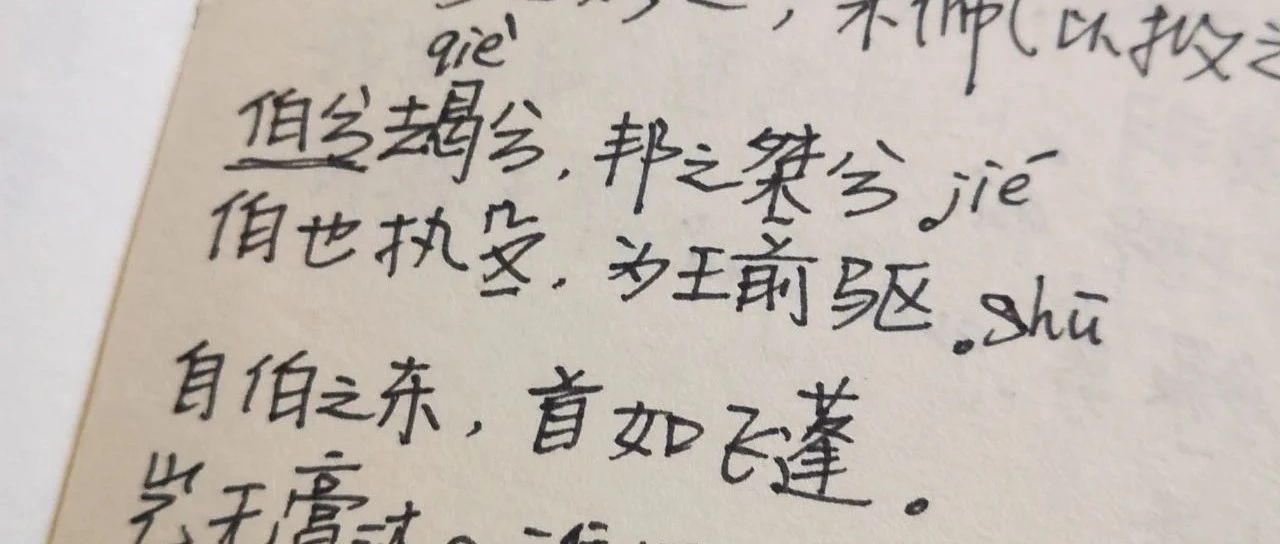 qiè
伯兮朅兮,邦之桀兮。jié
伯也执殳,为王前驱。shū
自伯之东,首如飞蓬。
岂无膏